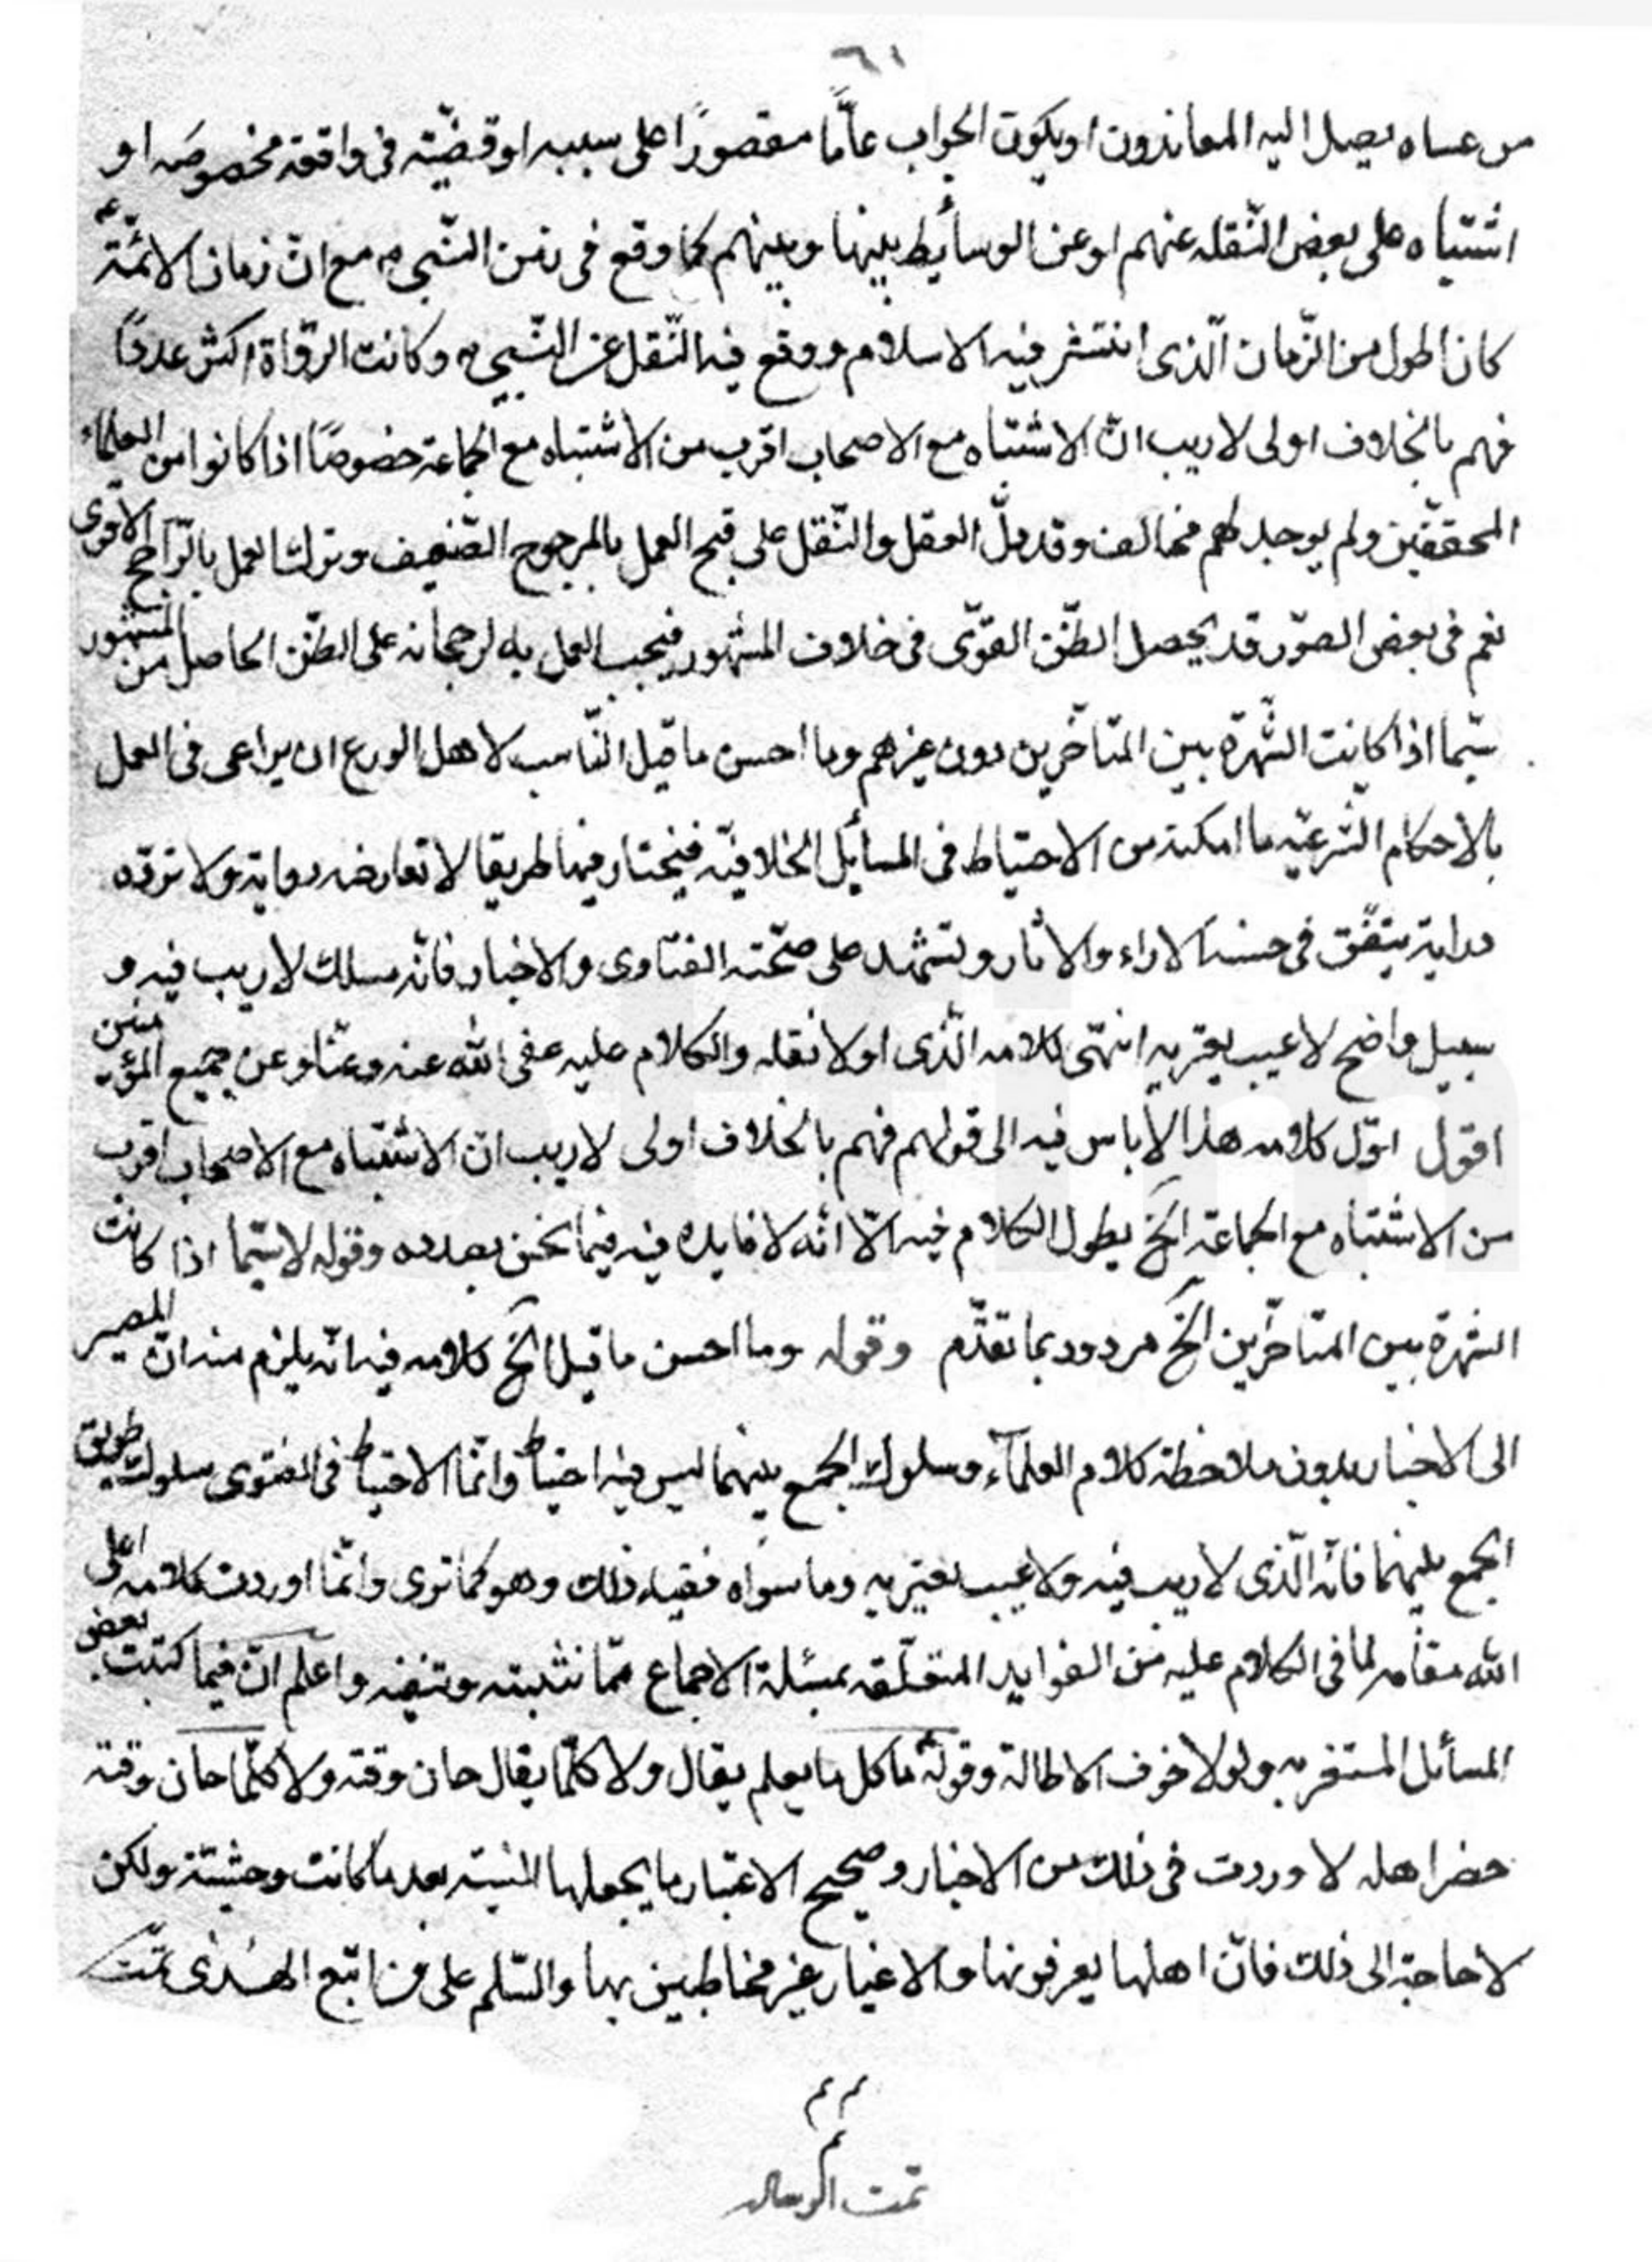 ٦١
من عساه يصل اليه المعاندون او يكون الجواب عامًّا مقصورًا على سببه او قضيّته فى واقعة مخصوصه او
اشتباه على بعض النّقله عنهم او عن الوسأيط بينها وبينهم كما وقع فى زمن النّبى ص مع انّ زمان الائمّة ع
كان اطول من الزّمان الّذى انتشر فيه الاسلام ووقع فيه النّقل عن النّبى ص وكانت الروّاة اكثر عددًا
فهم بالخلاف اولى لا ريب انّ الاشتباه مع الاصحاب اقرب من الاشتباه مع الجماعة خصوصًا اذا كانوا من العلماء
المحققّين ولم يوجد لهم مخالف وقد دلّ العقل والنّقل على قبح العمل بالمرجوح الضّعيف وترك العمل بالرّاجح الاقوى
نعم فى بعض الصوّر قد يحصل الظّن القوّى فى خلاف المشهور فيجب العمل به لرجحانه على الظّن الحاصل من المشهور
سيّما اذا كانت الشّهرة بين المتأخّرين دون غيرهم وما احسن ما قيل النّاسب لاهل الورع ان يراعى فى العمل
بالاحكام الشّرعيّه ما امكنه من الاحتياط فى المسأيل الخلافيّه فيختار فيها طريقا لا تعارضه رواية ولا تردّه
دراية يتفّق فى حسنه الاراء والاثار وتشهد على صحّته الفتاوى والاخبار فانّه مسلك لا ريب فيه و
سبيل واضح لا عيب يعتريه انتهى كلامه الّذى اولا نقله والكلام عليه عفى الله عنه وعنّا وعن جميع المؤمنين
اقول اوّل كلامه هذا لا باس فيه الى قولهم فهم بالخلاف اولى لا ريب انّ الاشتباه مع الاصحاب اقرب
من الاشتباه مع الجماعة الخ يطول الكلام فيه الّا انّه لا فايده فيه فيما نحن بصدده وقوله لا سيّما اذا كانت
الشهرة بين المتاخرّين الخ مردود بما تقدّم وقوله وما احسن ما قيل الخ كلامه فيه انّه يلزم منه انّ المصير
الى الاخبار بدون ملاحظة كلام العلمآء وسلوك الجمع بينهما ليس فيه احتياط وانّما الاحتياط فى الفتوى سلوك طريق
الجمع بينهما فانّه الّذى لا ريب فيه ولا عيب يعتريه وما سواه ففيه ذلك وهو كما ترى وانّما اوردت كلامه اعلى
الله مقامه لما فى الكلام عليه من الفوايد المتعلّقه بمسئلة الاجماع ممّا نثبته وننفيه واعلم انّ فيما كتبت بعض
المسائل المستغربه ولولا خوف الاطالة وقوله ع ما كل ما يعلم يقال ولا كلّما يقال حان وقته ولا كلّما حان وقته
حضر اهله لاوردت فى ذلك من الاخبار وصحيح الاعتبار ما يجعلها انيسته بعد ما كانت وحشيتة ولكن
لا حاجة الى ذلك فانّ اهلها يعرفونها والاغيار غير مخاطبين بها والسّلم على من اتبّع الهدى تمّت
م م
م
تمت الرساله